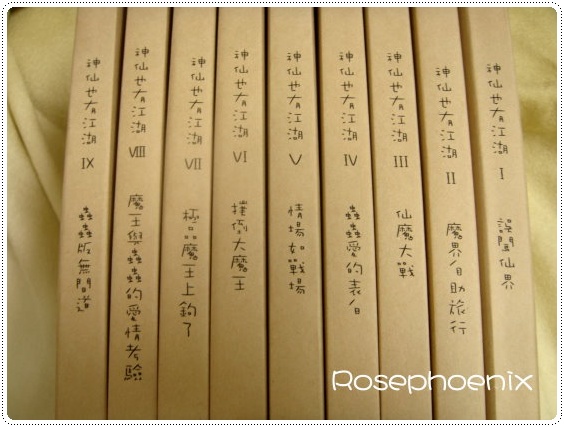 神仙也有江湖 I 誤闖仙界
神仙也有江湖 II 魔界自助旅行
神仙也有江湖 III 仙魔大戰
神仙也有江湖 IV 蟲蟲愛的表白
神仙也有江湖 V 情場如戰場
神仙也有江湖 VI 撲倒大魔王
神仙也有江湖 VII 極品魔王上鉤了
神仙也有江湖 VIII 魔王與蟲蟲的愛情考驗
神仙也有江湖 IX 蟲蟲版無間道
Rosephoenix